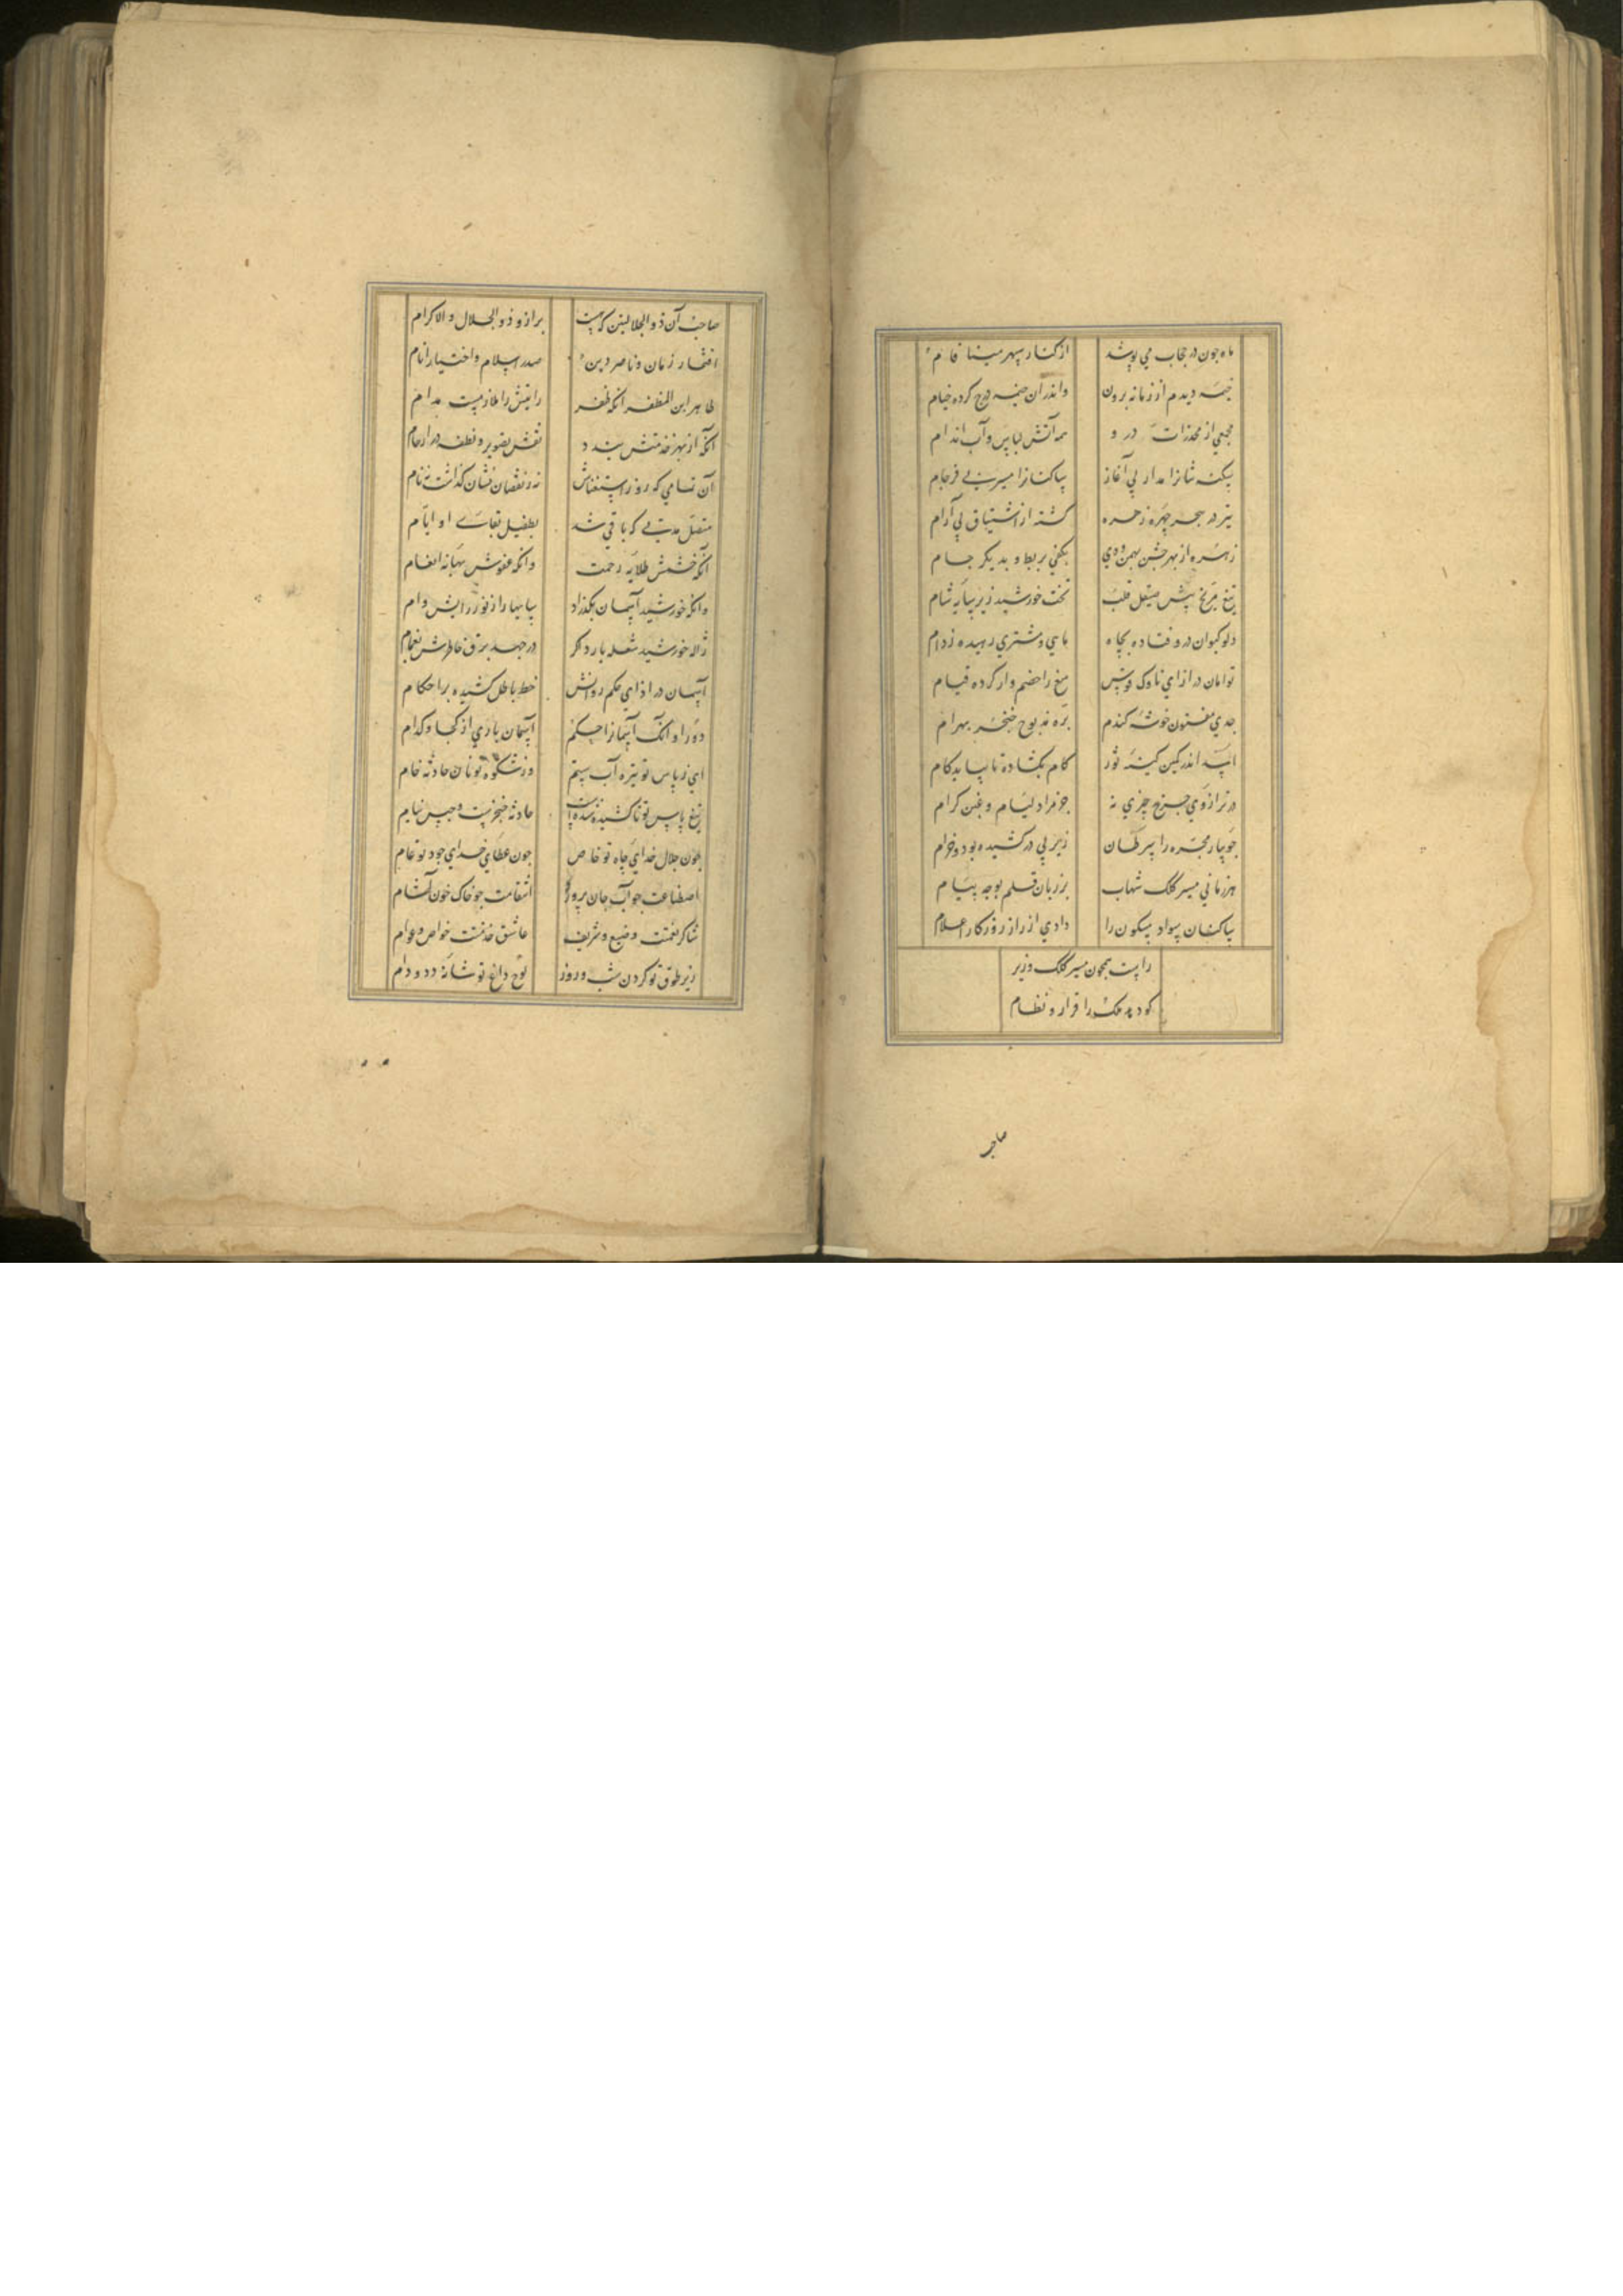 ماه چون در حجاب می پوشد از کنار سپهر مینا فام
خیمه دیدم از زمانه برون واندران خیمه کرده خیام
مجمعی از مخدرات درو همه آتش لباس و آب اندام
سکنه شانرا مدار بی آغاز ساکنانرا مسیر بی فرجام
تیر در هجر چهره زهره کشته از اشتیاق بی آرام
زهره از بهر جشن بهمن ودی بکفی بربط و بدیکر جام
تیغ مریخ پیش صیقل قلب تخت خورشید زیر سایه شام
دلو کیوان درو فتاده بچاه ماهی ومشتری رهیده زدام
توامان در ازای ناوک قوس تیغ را خصم وار کرده قیام
جدی مفتون خوشه کندم بره مذبوح خنجر بهرام
اسد اندر کمین کینه ثور کام بکشاده تا بیابد کام
در ترازوی چرخ چیزی نه جز مراد لئام و غبن کرام
جویبار مجره را سرطان زیر پی درکشیده بود وخرام
هر زمانی مسیر کلک شهاب بر زبان قلم بوجه پیام
ساکنان سواد مسکون را دادی از راز روزکار اعلام
راست همچون مسیر کلک وزیر
کو دهد ملک را قرار و نظام
صاحب
صاحب آن ذو الجلالین که نیست برازو ذو الجلال و الاکرام
افتخار زمان وناصر دین صدر اسلام واختیار انام
طاهر ابن المظفر انکه ظفر رایتش را ملازمست مدام
آنکه از بهر خدمتش بندد نقش تصویر و نطفه در ارحام
آن تمامی که روز استغناش نه ز نقصان نشان گذاشت نه نام
متصل مدتی که باقی شد بطفیل بقای او ایام
آنکه خشمش طلایه رحمت وانکه عفوش بهانه انعام
وانکه خورشید آسمان بکذارد سایها را ز نور رایش وام
ژاله خورشید شعله بارد اکر در جهد برق خاطرش بغمام
آسمان در ازای حکم روانش خط باطل کشیده بر احکام
دور او آنک آسمانرا حکم آسمان باری از کجا وکدام
ای ز پاس تو تیره آب ستم وز شکوه تو نان حادثه خام
تیغ پاس تو تا کشیده شدست حادثه خنجرست وحبس نیام
چون جلال خدای جاه تو خاص چون عطای خدای جود تو عام
اصطناعت چو آب جان پرور انتقامت چو خاک خون آشام
شاکر نعمتت وضیع وشریف عاشق خدمتت خواص وعوام
زیر طوق تو کردن شب وروز لوح داغ تو شانه دد و دام